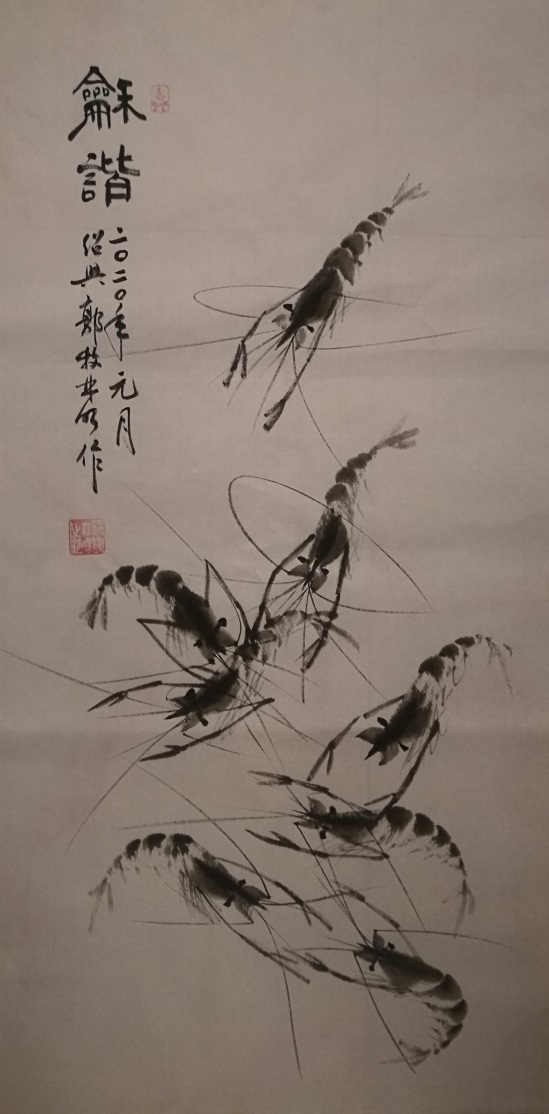 龢諧
二〇二〇年元月
绍興郭牧林作